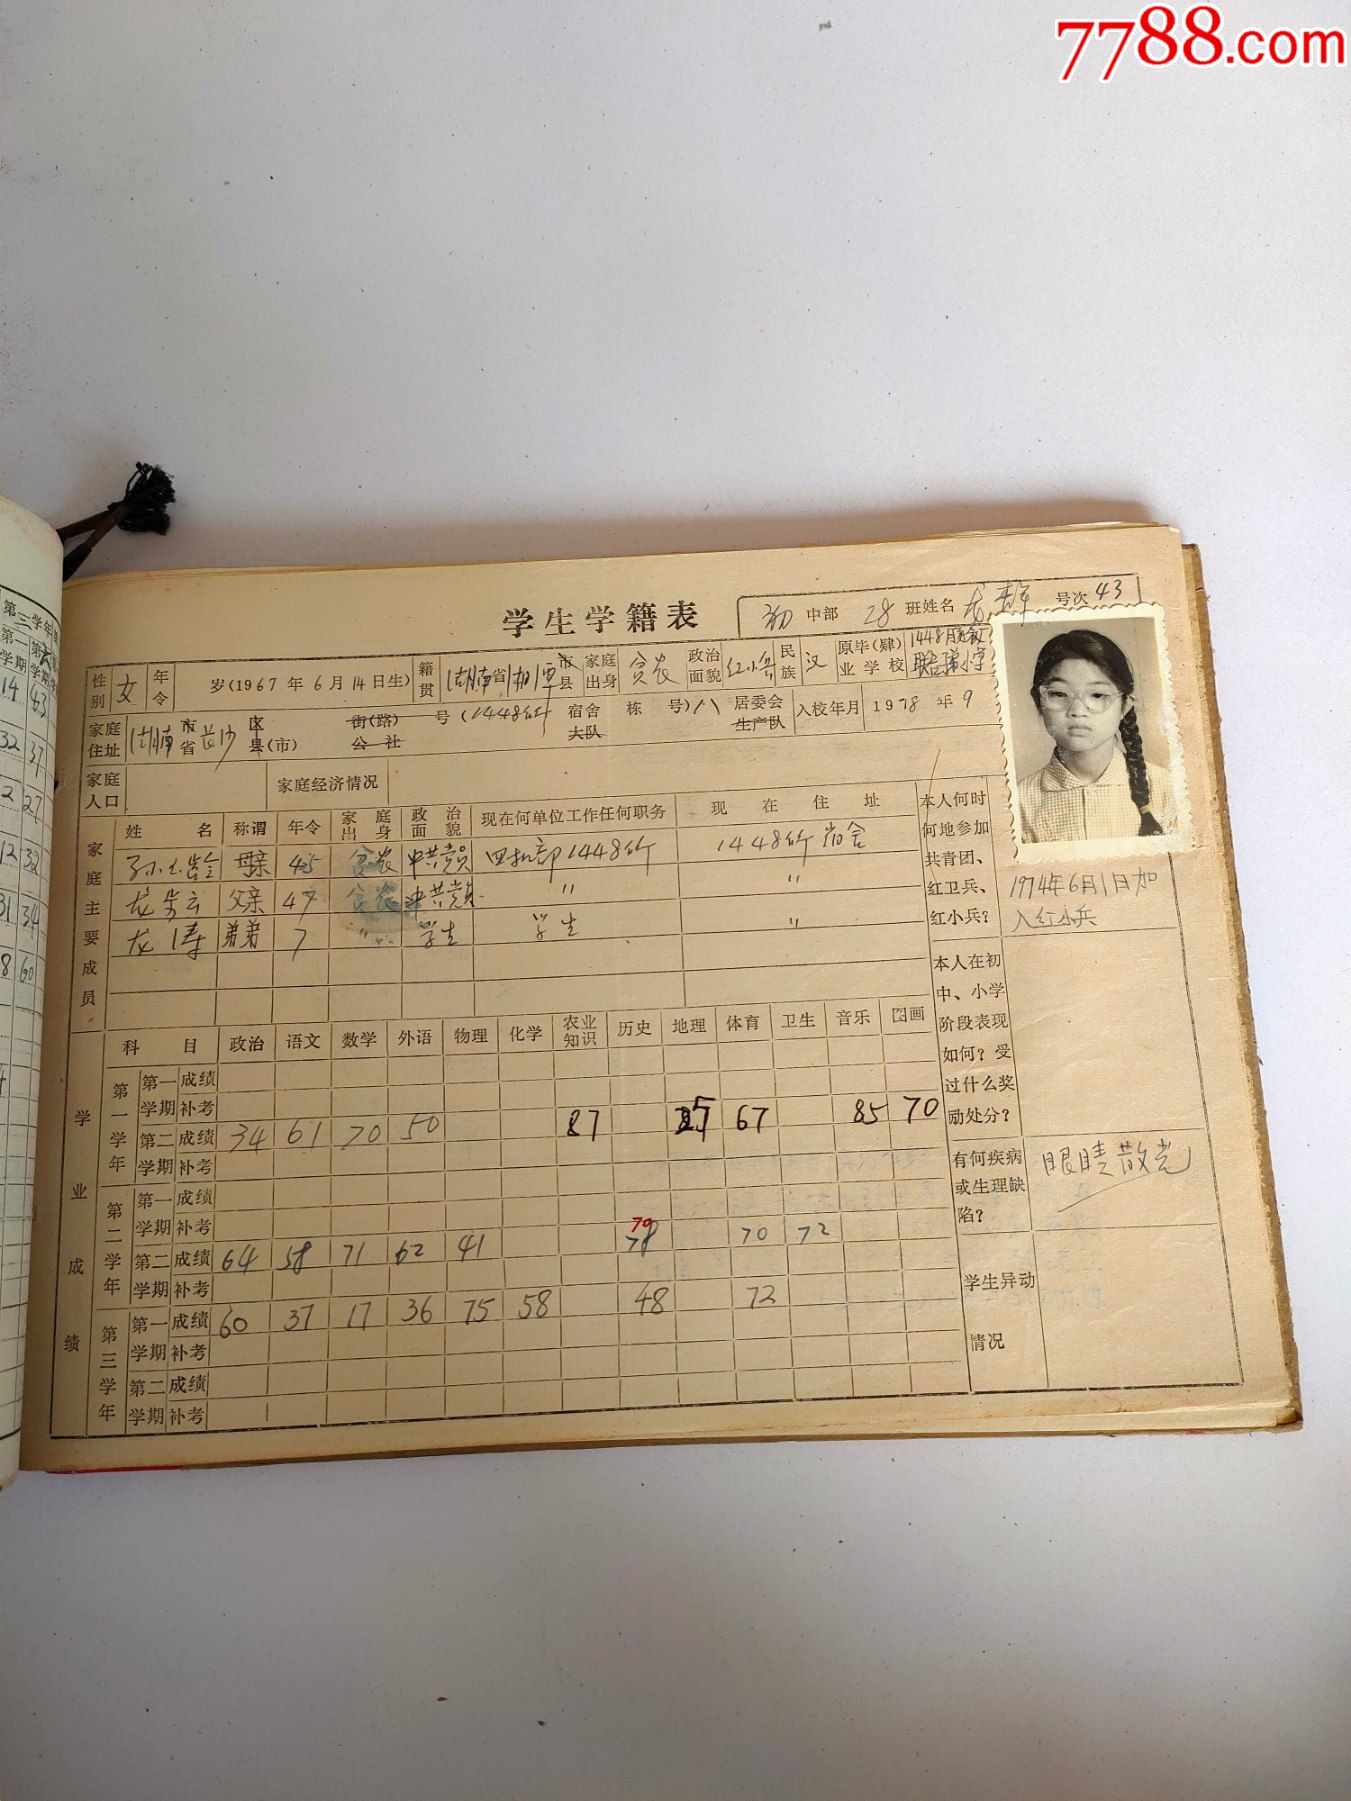 7788.com
学生学籍表
初 中部 28 班姓名 龙 号次 43
性别 女 年令 岁(1967年6月14日生) 籍贯 湖南省湘潭市县 家庭出身 贫农 政治面貌 红小兵 民族 汉 原毕(肄)业学校 1448
家庭住址 湖南市省长沙区县(市) 街(路)公社 号(1448所 宿舍大队 栋 号)八 居委会生产队 入校年月 1978年9
家庭人口 家庭经济情况
家庭主要成员
姓名 称谓 年令 家庭出身 政治面貌 现在何单位工作任何职务 现在住址
孙 龄 母亲 45 贫农 中共党员 四机部1448所 1448所宿舍
龙 云 父亲 47 贫农 中共党员 〃 〃
龙涛 弟弟 7 〃 学生 学生 〃
本人何时何地参加共青团、红卫兵、红小兵? 1974年6月1日加入红小兵
本人在初中、小学阶段表现如何?受过什么奖励处分?
有何疾病或生理缺陷? 眼睛散光
学生异动情况
学业成绩
科目 政治 语文 数学 外语 物理 化学 农业知识 历史 地理 体育 卫生 音乐 图画
第一学年 第一学期 成绩
补考
第二学期 成绩 34 61 70 50 87 67 85 70
补考
第二学年 第一学期 成绩
补考
第二学期 成绩 64 58 71 62 41 70 78 70 72
补考
第三学年 第一学期 成绩 60 37 17 36 75 58 48 72
补考
第二学期 成绩
补考
第三学年
第一学期 第二学期
14 43
32 37
2 27
12 32
31 34
8 60